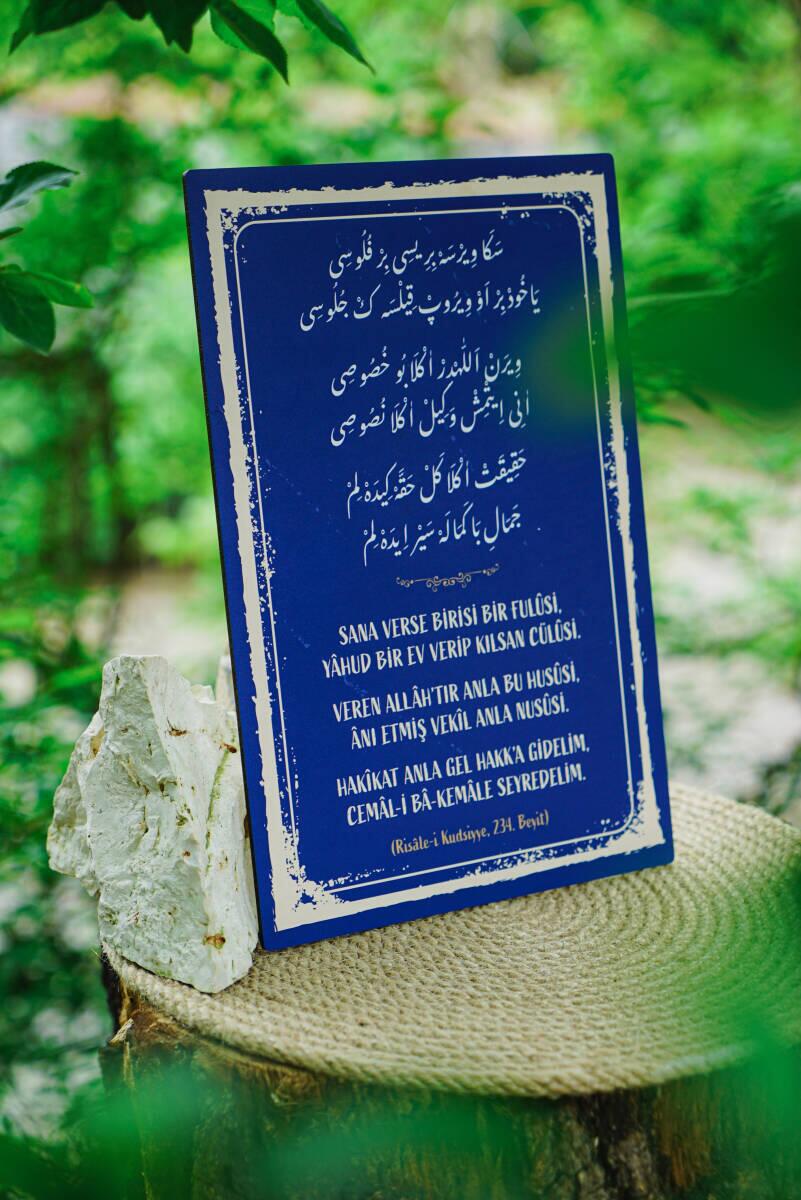 سَكَا وِيرْسَه بِرِيسِى بِرْ فُلُوسِى
يَاخُودْ بِرْ اَوْ وِيرُوپْ قِيلْسَه كْ جُلُوسِى
وِيرَنْ اَللّٰهْدِرْ اٰكْلَا بُو خُصُوصِى
اٰنِى اِيتْمِشْ وَكِيلْ اٰكْلَا نُصُوصِى
حَقِيقَتْ اٰكْلَا كَلْ حَقَّه كِيدَه لِمْ
جَمَالِ بَا كَمَالَه سَيْر اِيدَه لِمْ
SANA VERSE BİRİSİ BİR FULÛSİ,
YÂHUD BİR EV VERİP KILSAN CÜLÛSİ.
VEREN ALLÂH'TIR ANLA BU HUSÛSİ,
ÂNI ETMİŞ VEKÎL ANLA NUSÛSİ.
HAKÎKAT ANLA GEL HAKK'A GİDELİM,
CEMÂL-İ BÂ-KEMÂLE SEYREDELİM.
(Risâle-i Kudsiyye, 234. Beyit)